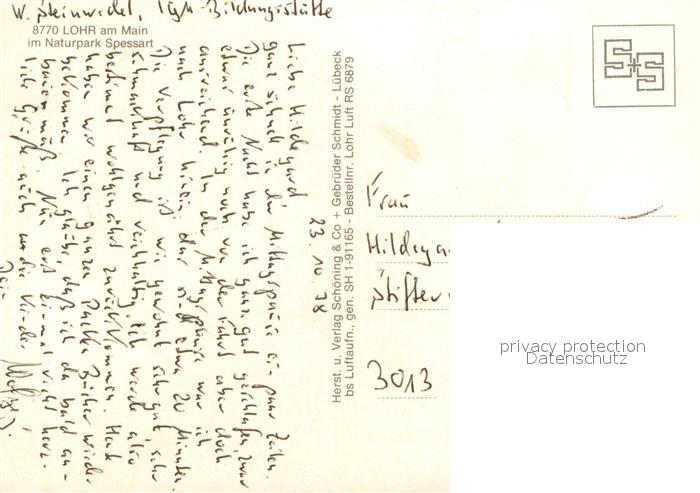 W. Steinwedel, IGM-Bildungsstätte
8770 LOHR am Main
im Naturpark Spessart
23.10.78
Liebe Hildegard,
ganz schnell in der Mittagspause ein paar Zeilen.
Die erste Nacht habe ich ganz gut geschlafen, zwar
etwas unruhig noch von der Fahrt aber doch
ausreichend. In der Mittagspause war ich
nach Lohr hinein; das sind etwa 20 Minuten.
Die Verpflegung ist wie gewohnt sehr gut, sehr
schmackhaft und reichhaltig. Ich werde also
bestimmt wohlgenährt zurückkommen. Heute
haben wir einen ganzen Packen Bücher wieder
bekommen. Ich glaube, daß ich da bald an-
bauen muß. Nun erst einmal recht herz-
liche Grüße auch an die Kinder
Dein
Herst. u. Verlag Schöning & Co + Gebrüder Schmidt - Lübeck
bs Luftaufn., gen. SH 1-91165 - Bestellnr. Lohr Luft RS 6879
S+S
Frau
Hildega
Stifter
3013
privacy protection
Datenschutz